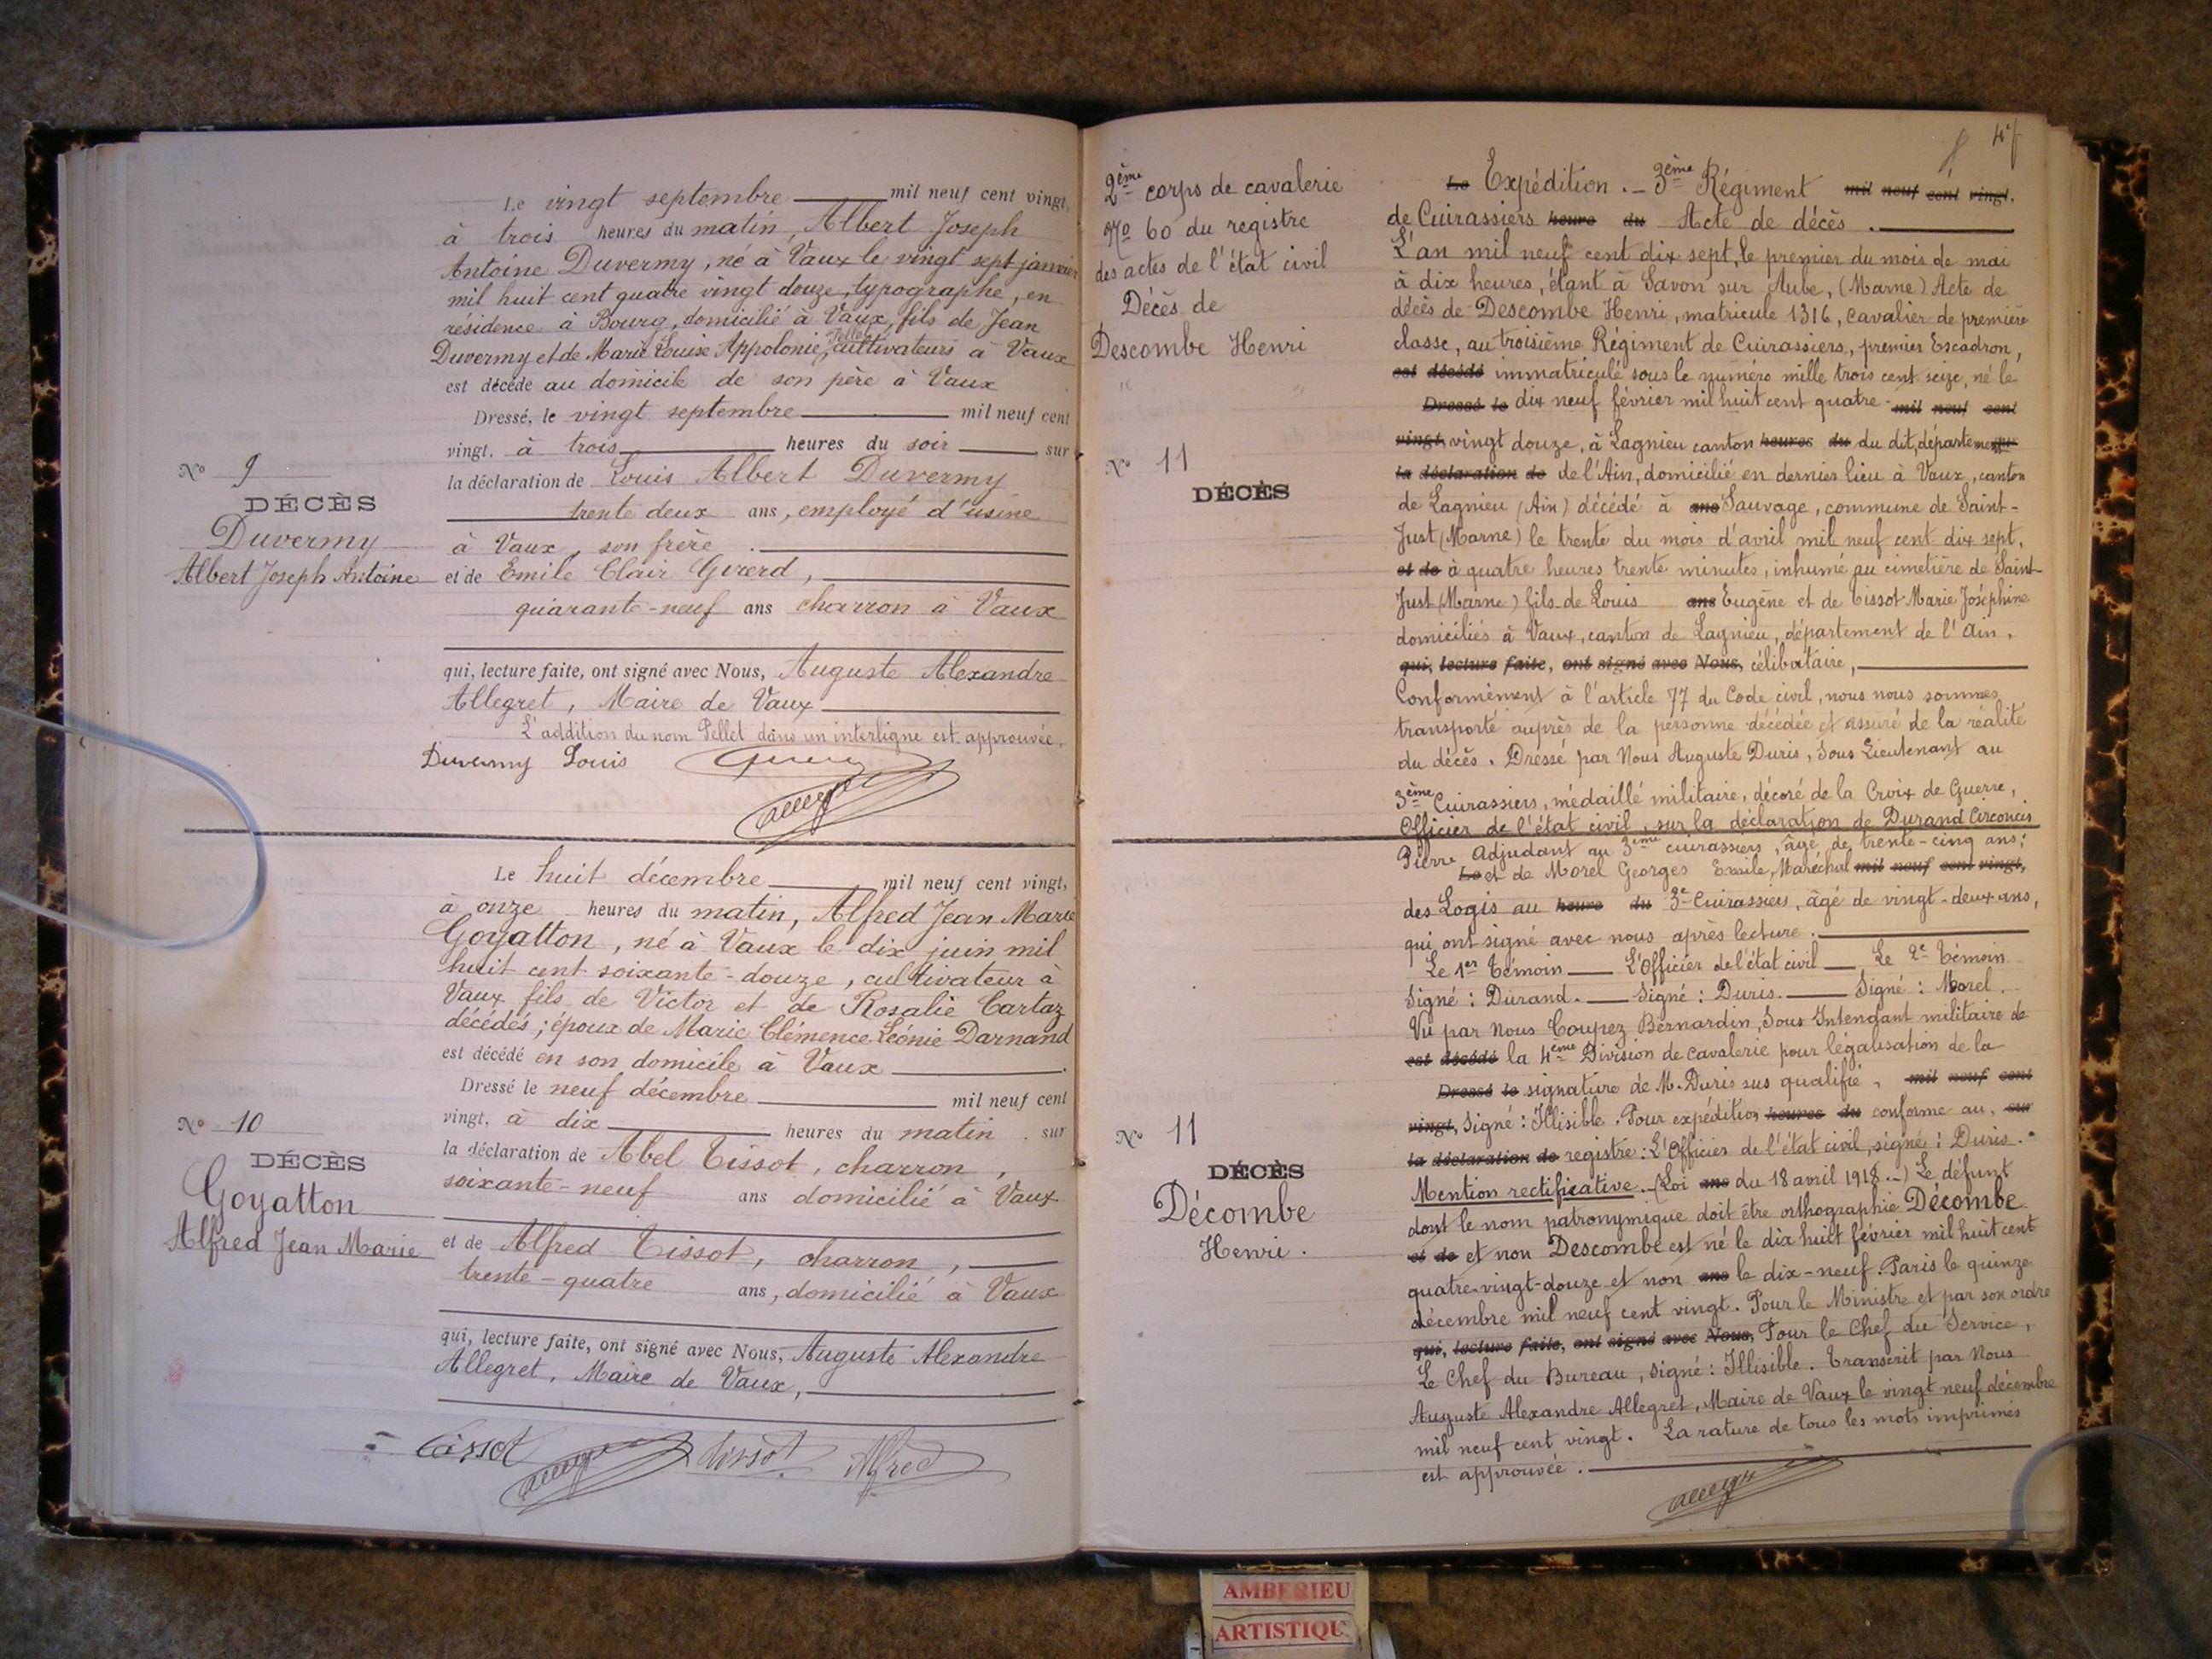 Le vingt septembre mil neuf cent vingt,
à trois heures du matin, Albert Joseph
Antoine Duvermy, né à Vaux le vingt sept janvier
mil huit cent quatre vingt douze, typographe, en
résidence à Bourg, domicilié à Vaux, fils de Jean
Pellet
Duvermy et de Marie Louise Appolonie, cultivateurs à Vaux
est décédé au domicile de son père à Vaux
Dressé, le vingt septembre mil neuf cent
vingt, à trois heures du soir, sur
la déclaration de Louis Albert Duvermy
trente deux ans, employé d'usine
à Vaux, son frère.
et de Emile Clair Girerd,
quarante-neuf ans charron à Vaux
qui, lecture faite, ont signé avec Nous, Auguste Alexandre
Allegret, Maire de Vaux
L'addition du nom Pellet dans un interligne est approuvée.
Duvermy Louis
No 9
DÉCÈS
Duvermy
Albert Joseph Antoine
Le huit décembre mil neuf cent vingt,
à onze heures du matin, Alfred Jean Marie
Goyatton, né à Vaux le dix juin mil
huit cent soixante-douze, cultivateur à
Vaux fils de Victor et de Rosalie Cartaz
décédés; époux de Marie Clémence Léonie Darnand
est décédé en son domicile à Vaux.
Dressé le neuf décembre mil neuf cent
vingt, à dix heures du matin. sur
la déclaration de Abel Tissot, charron,
soixante-neuf ans domicilié à Vaux
et de Alfred Tissot, charron,
trente-quatre ans, domicilié à Vaux
qui, lecture faite, ont signé avec Nous, Auguste Alexandre
Allegret, Maire de Vaux,
Tissot Tissot Alfred
No 10
DÉCÈS
Goyatton
Alfred Jean Marie
2ème corps de cavalerie
No 60 du registre
des actes de l'état civil
Décès de
Descombe Henri
No 11
DÉCÈS
Le Expédition.- 3ème Régiment mil neuf cent vingt.
de Cuirassiers heure du Acte de décès.
L'an mil neuf cent dix sept, le premier du mois de mai
à dix heures, étant à Savon sur Aube, (Marne) Acte de
décès de Descombe Henri, matricule 1316, cavalier de première
classe, au troisième Régiment de Cuirassiers, premier Escadron,
est décédé immatriculé sous le numéro mille trois cent seize, né le
Dressé le dix neuf février mil huit cent quatre- mil neuf cent
vingt, vingt douze, à Lagnieu canton heures du du dit, département
la déclaration de de l'Ain, domicilié en dernier lieu à Vaux, canton
de Lagnieu (Ain) décédé à ans Sauvage, commune de Saint-
Just (Marne) le trente du mois d'avril mil neuf cent dix sept,
et de à quatre heures trente minutes, inhumé au cimetière de Saint-
Just (Marne) fils de Louis ans Eugène et de Tissot Marie Joséphine
domiciliés à Vaux, canton de Lagnieu, département de l'Ain,
qui, lecture faite, ont signé avec Nous, célibataire,
Conformément à l'article 77 du Code civil, nous nous sommes
transporté auprès de la personne décédée et assuré de la réalité
du décès. Dressé par Nous Auguste Duris, Sous Lieutenant au
3ème Cuirassiers, médaillé militaire, décoré de la Croix de Guerre,
Officier de l'état civil, sur la déclaration de Durand Circoncis
Pierre Adjudant au 3ème cuirassiers, âgé de trente-cinq ans;
Le et de Morel Georges Emile, Maréchal mil neuf cent vingt,
des Logis au heure du 3e Cuirassiers, âgé de vingt-deux ans,
qui ont signé avec nous après lecture.
Le 1er Témoin L'Officier de l'état civil Le 2e Témoin
Signé: Durand. Signé: Duris. Signé: Morel.
Vu par Nous Coupez Bernardin, Sous Intendant militaire de
est décédé la 4ème Division de cavalerie pour légalisation de la
Dressé le signature de M. Duris sus qualifié, mil neuf cent
vingt, Signé: Illisible. Pour expédition heures du conforme au, sur
la déclaration de registre: L'Officier de l'état civil, signé: Duris.
Mention rectificative. (Loi ans du 18 avril 1918.-) Le défunt
dont le nom patronymique doit être orthographié Décombe
et de et non Descombe est né le dix huit février mil huit cent
quatre-vingt-douze et non ans le dix-neuf. Paris le quinze
décembre mil neuf cent vingt. Pour le Ministre et par son ordre
qui, lecture faite, ont signé avec Nous, Pour le Chef du Service,
Le Chef du Bureau, signé: Illisible. Transcrit par Nous
Auguste Alexandre Allegret, Maire de Vaux le vingt neuf décembre
mil neuf cent vingt. La rature de tous les mots imprimés
est approuvée.
No 11
DÉCÈS
Décombe
Henri.
AMBERIEU
ARTISTIQU